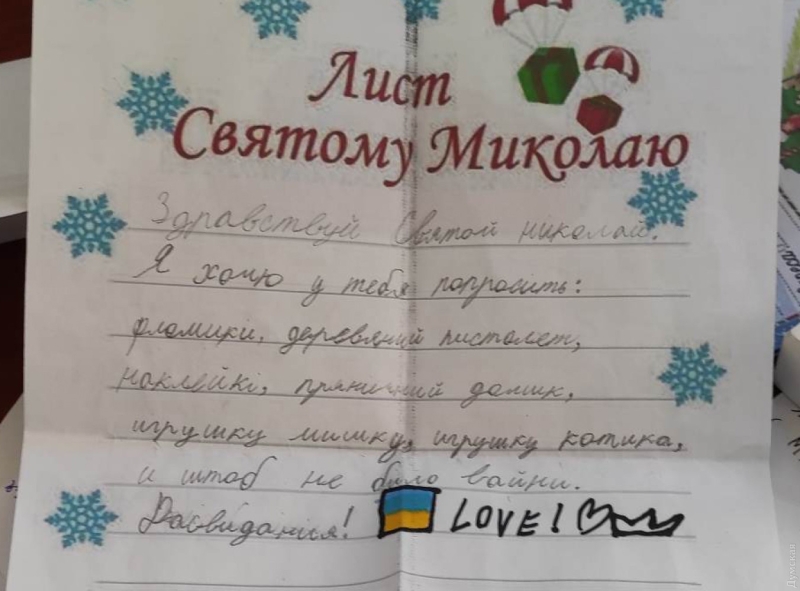 Лист
Святому Миколаю
Здравствуй Святой николай.
Я хочу у тебя попросить:
фломики, деревяний пистолет,
наклейкі, пряничний домик,
игрушку мишку, игрушку котика,
и штоб не було вайни.
Дасвидания! LOVE!
Думская